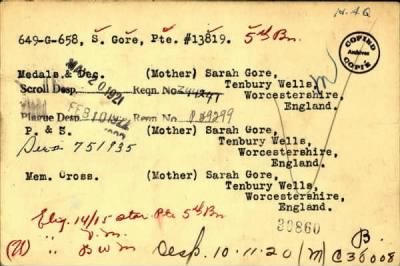 649-G-658, S. Gore, Pte. #13819. 5th Bn.
COPIED
Archives
COPIÉ
Medals & Dec. (Mother) Sarah Gore,
Scroll Desp. 1921 Reqn. No. Tenbury Wells,
Worcestershire,
England.
Plaque Desp. FEB 10 1922 Reqn. No. P29299
P. & S. (Mother) Sarah Gore,
Tenbury Wells,
Worcestershire,
England.
Mem. Cross. (Mother) Sarah Gore,
Tenbury Wells,
Worcestershire,
England.
30860
Elig. 14/15 star Pte 5th Bn
" V.M.
" B W M Desp. 10.11.20 (M) C38008
B